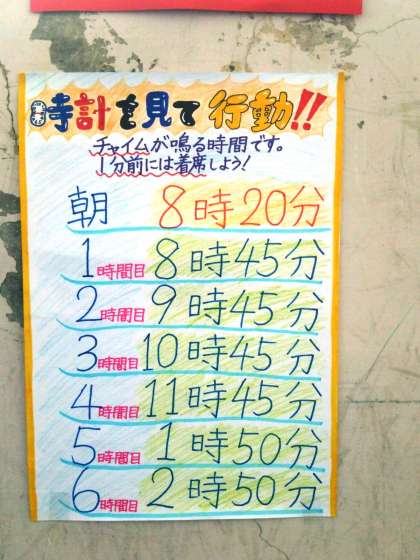 時計を見て行動!!
チャイムが鳴る時間です。
1分前には着席しよう!
朝 8時20分
1時間目 8時45分
2時間目 9時45分
3時間目 10時45分
4時間目 11時45分
5時間目 1時50分
6時間目 2時50分